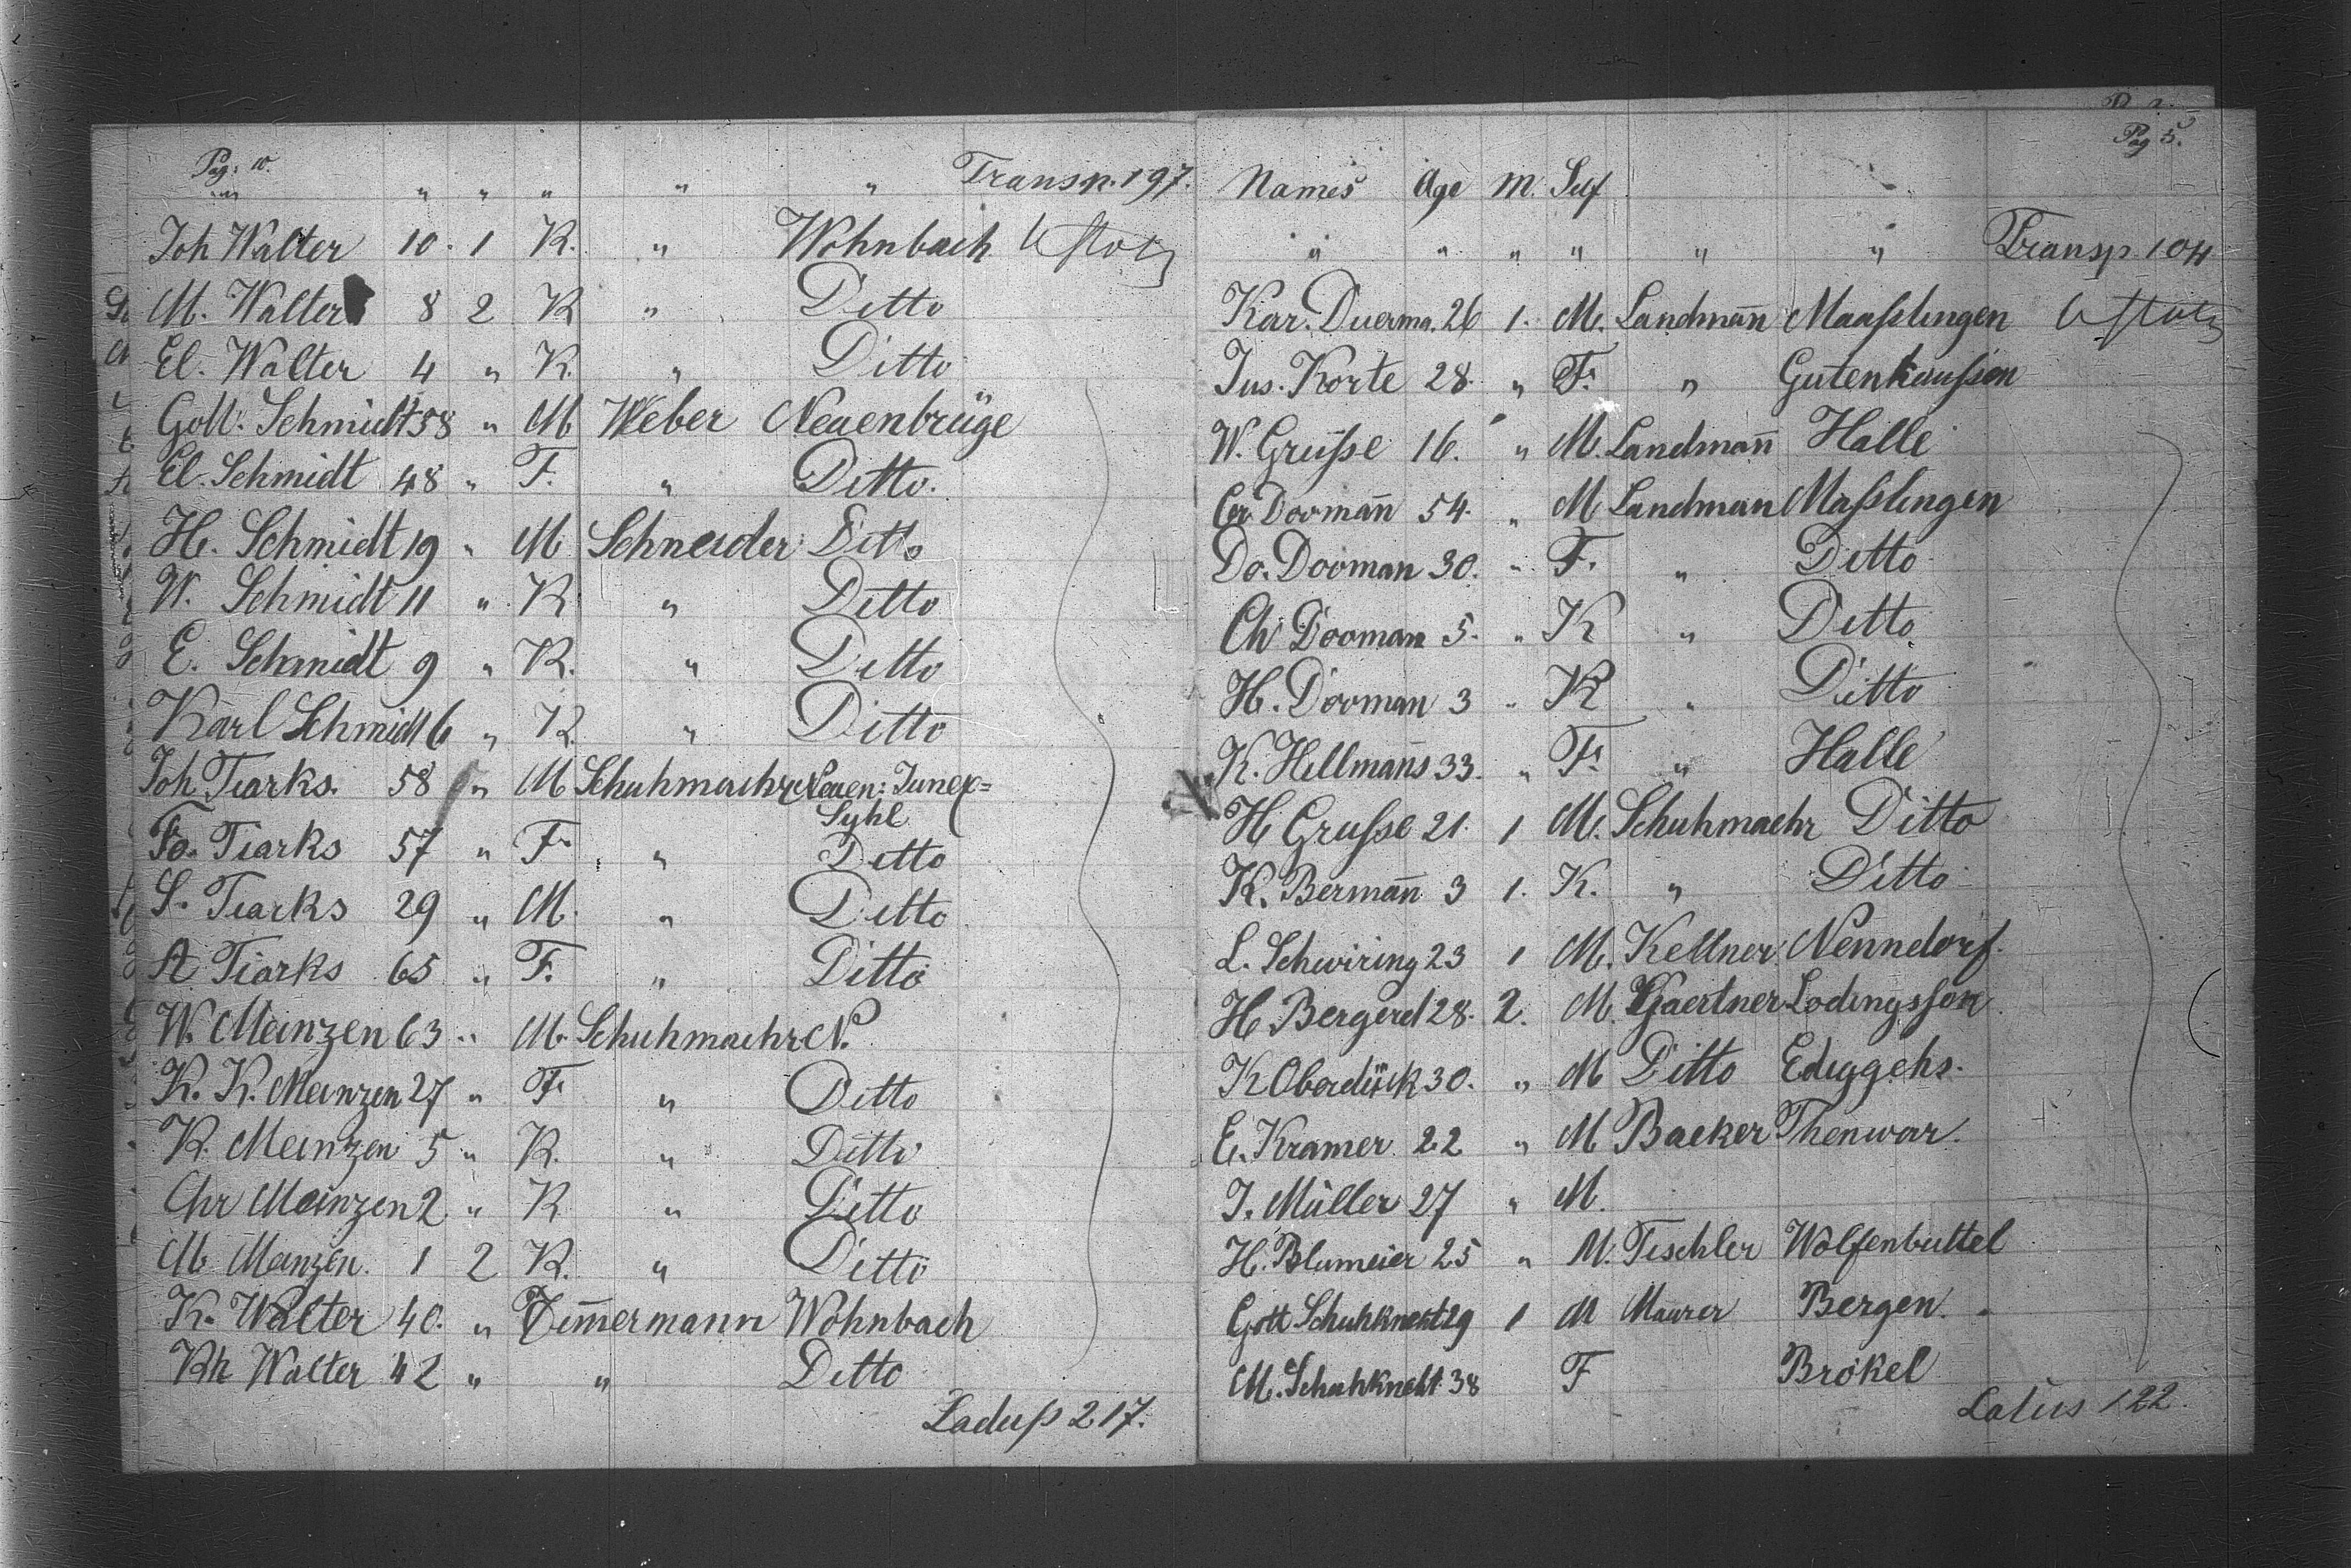 Pag: 10.
" " " " " " Transp. 197.
Joh Walter 10. 1 K. " Wohnbach
M. Walter 8 2 K " Ditto
El. Walter 4 " K. " Ditto
Gott. Schmidt 58 " M Weber Neuenbrüge
El. Schmidt 48 " F. " Ditto.
H. Schmidt 19 " M Schneider Ditto
W. Schmidt 11 " K " Ditto
E. Schmidt 9 " K. " Ditto
Karl Schmidt 6 " K. " Ditto
Joh Tiarks. 58 " M Schuhmachr
Syhl
Fo. Tiarks 57 " F. " Ditto
S. Tiarks 29 " M. " Ditto
A Tiarks 65 " F. " Ditto
W. Meinzen 63 " M. Schuhmachr N.
K. K. Meinzen 27 " F " Ditto
K. Meinzen 5 " K. " Ditto
Chr Meinzen 2 " K " Ditto
M Meinzen. 1 2 K. " Ditto
K. Walter 40. " Zim̄ermann Wohnbach
Kh Walter 42 " " Ditto
Laduß 217.
Pag 5.
Names Age M. Self
" " " " " " Transp. 104
Kar. Duerma. 26 1. M. Landman̄ Maaßlingen
Jus. Korte 28. " F. " Gutenhaußen
W. Grußse 16. " M. Landman̄ Halle
Cr Dooman̄ 54. " M Landman Maßlingen
Do. Dooman 30. " F. " Ditto
Ch Dooman 5. " K " Ditto
H. Dooman 3 " K " Ditto
K. Hellman̄s 33. " F. " Halle
H Grußse 21. 1 M. Schuhmachr Ditto
K. Berman̄ 3 1. K. " Ditto
L. Schwiring 23 1 M. Kellner Nenndorf.
H Bergerd 28. 2. M. Gaertner Lodingsson
K Oberdück 30. " M Ditto Edeggehs.
E. Kramer 22 " M Backer Thenwar.
J. Müller 27 " M.
H. Blumeier 25 " M. Tischler Wolfenbuttel
Gott Schuhknecht 29 1 M Maurer Bergen.
M. Schuhknecht 38 F Brökel
Latus 122.